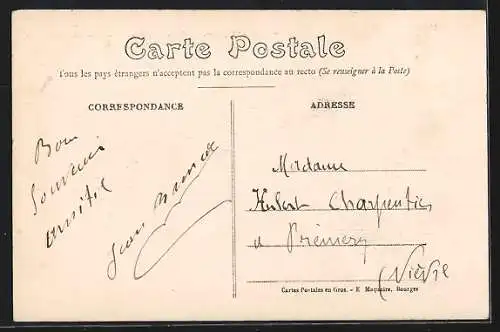 Carte Postale
Tous les pays étrangers n'acceptent pas la correspondance au recto (Se renseigner à la Poste)
CORRESPONDANCE
Bon
Souvenir
amitié
Jean
ADRESSE
Madame
Hubert Charpentier
à Prémery
(Nièvre
Cartes Postales en Gros. - E. Maquaire, Bourges